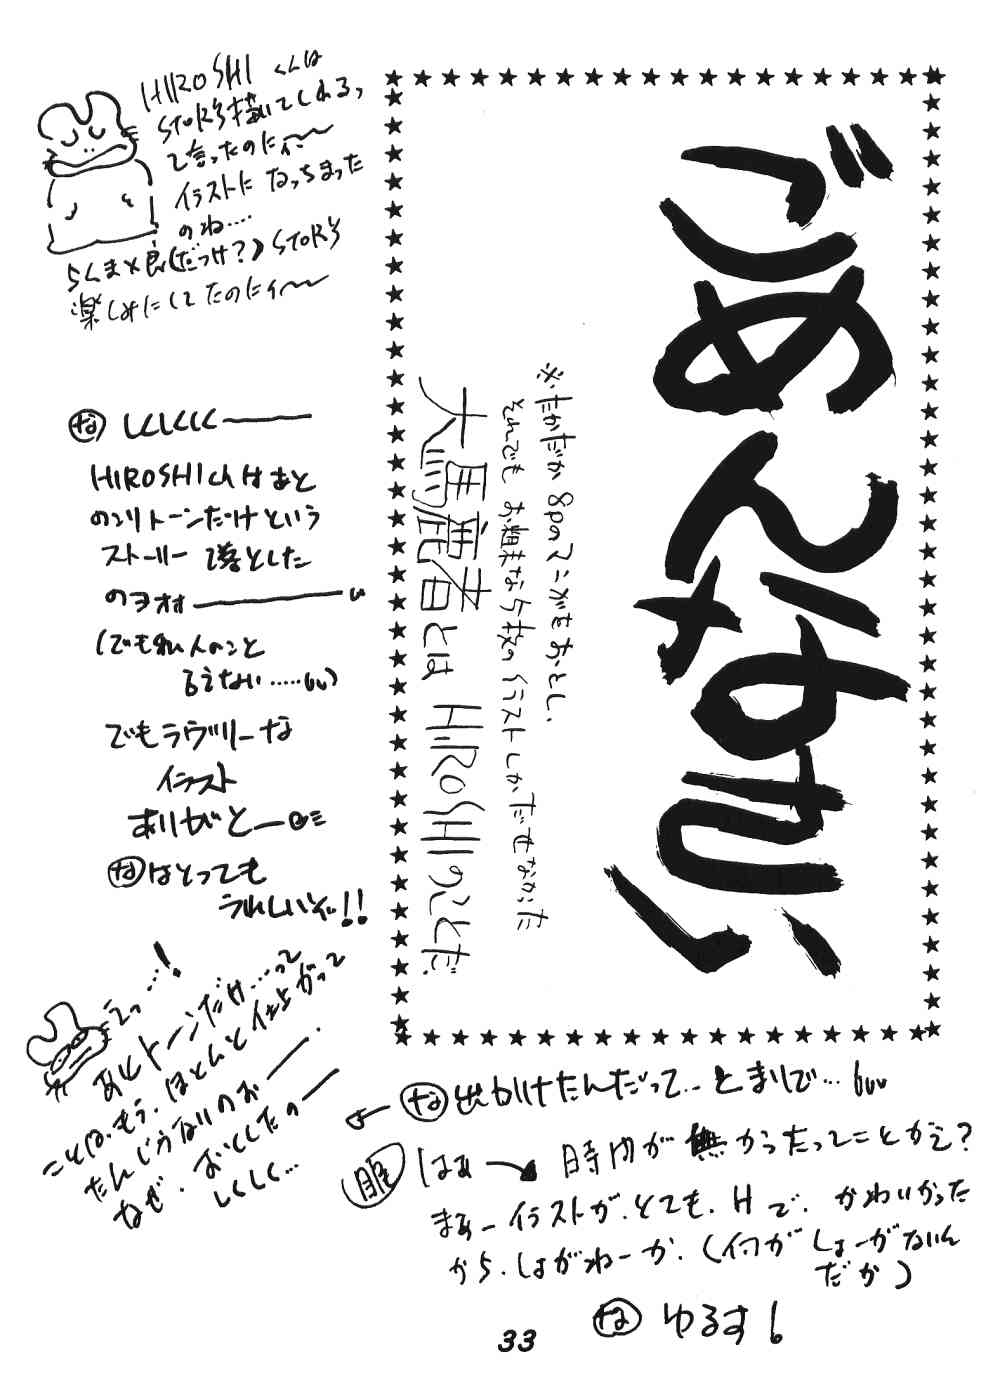 ごめんなさい
※たかだか8pのマンガをおとし、
それでもお粗末な5枚のイラストしかだせなかった
大馬鹿者とは HIROSHIのことだ
HIROSHIくんは
STORY描いてくれる、
て言ったのにィ〜
イラストになっちまった
のね……
らんま×良(だっけ?)STORY
楽しみにしてたのにィ〜
な しくしくしく——
HIROSHIくんはあと
のこりトーンだけという
ストーリー を落とした
のヲオオ——
(でも私、人のこと
言えない……)
でもラヴリーな
イラスト
ありがとー
なはとっても
うれしいぞ!!
えっ…!
あとトーンだけ…って
ことは、もう、ほとんど仕上がって
たんじゃないのおー.
なぜ、おとしたのー
しくしく…
な 出かけたんだって…とまりで…
服 はあ→ 時间が無かったってことかえ?
まあーイラストが、とても、Hで、かわいかった
から、しょがねーか.(何がしょーがないん
だか)
な ゆるす!
33